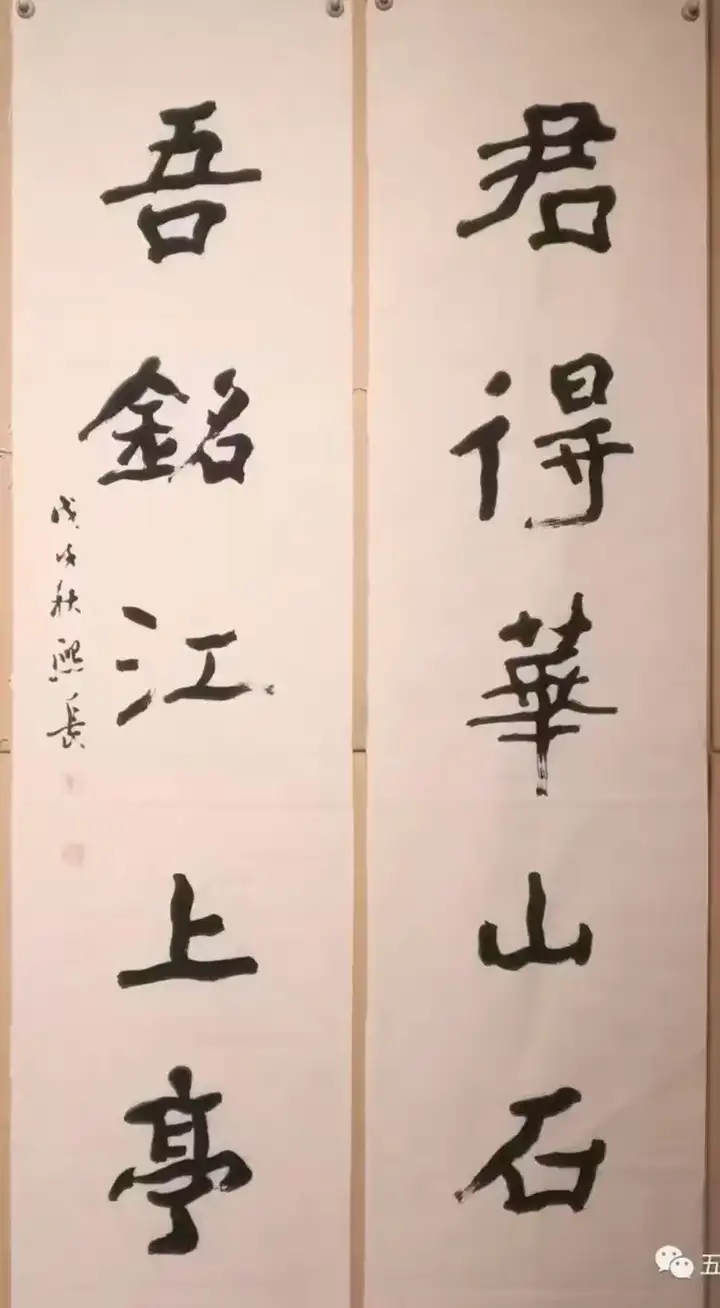 君得華山石
吾銘江上亭
戊戌秋熙長
五